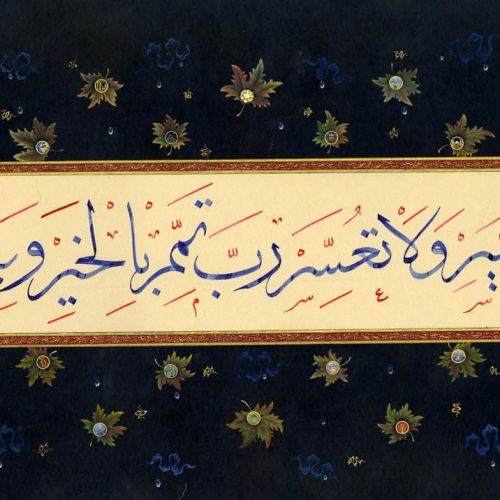 يسر وَلَا تُعَسِّرْ رَبِّ تَمِّمْ بِالْخَيْرِ